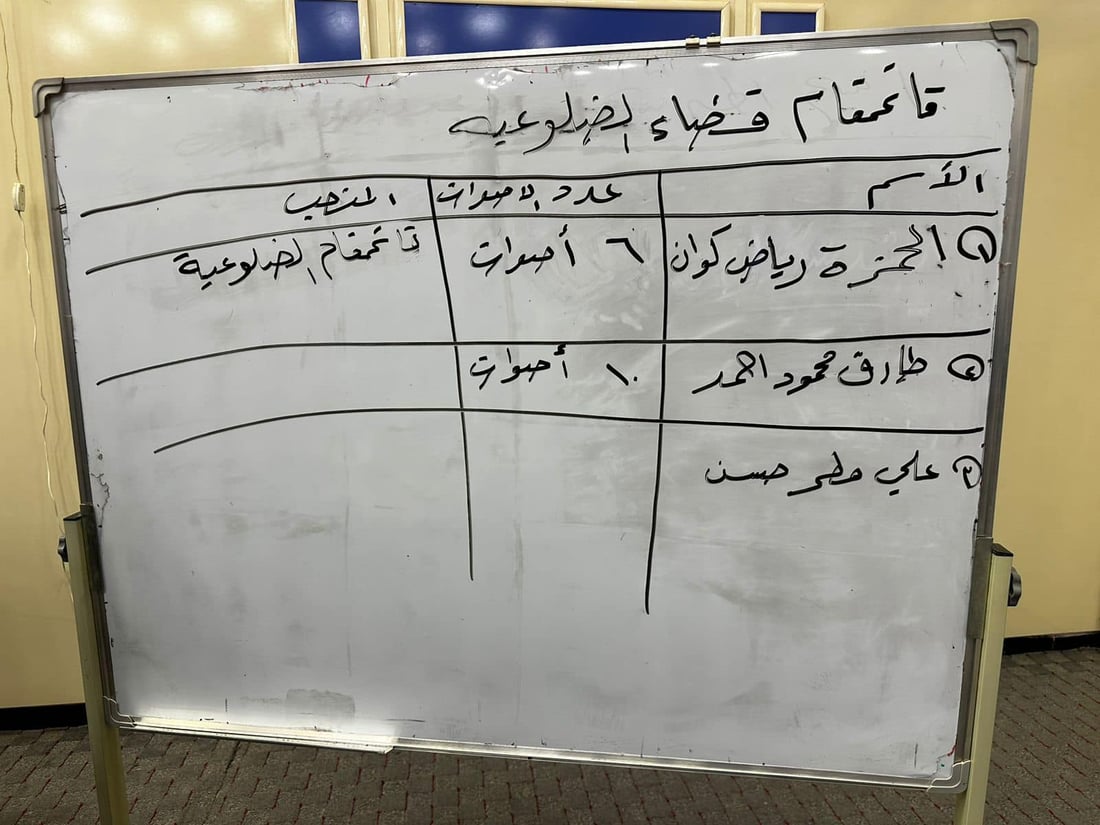 قائمقام قضاء الضلوعيه
الأسم عدد الاصوات المنتخب
١ الحمزة رياض كوان ٦ أصوات قائمقام الضلوعية
٢ طارق محمود احمد ١٠ أصوات
٣ علي مطر حسن